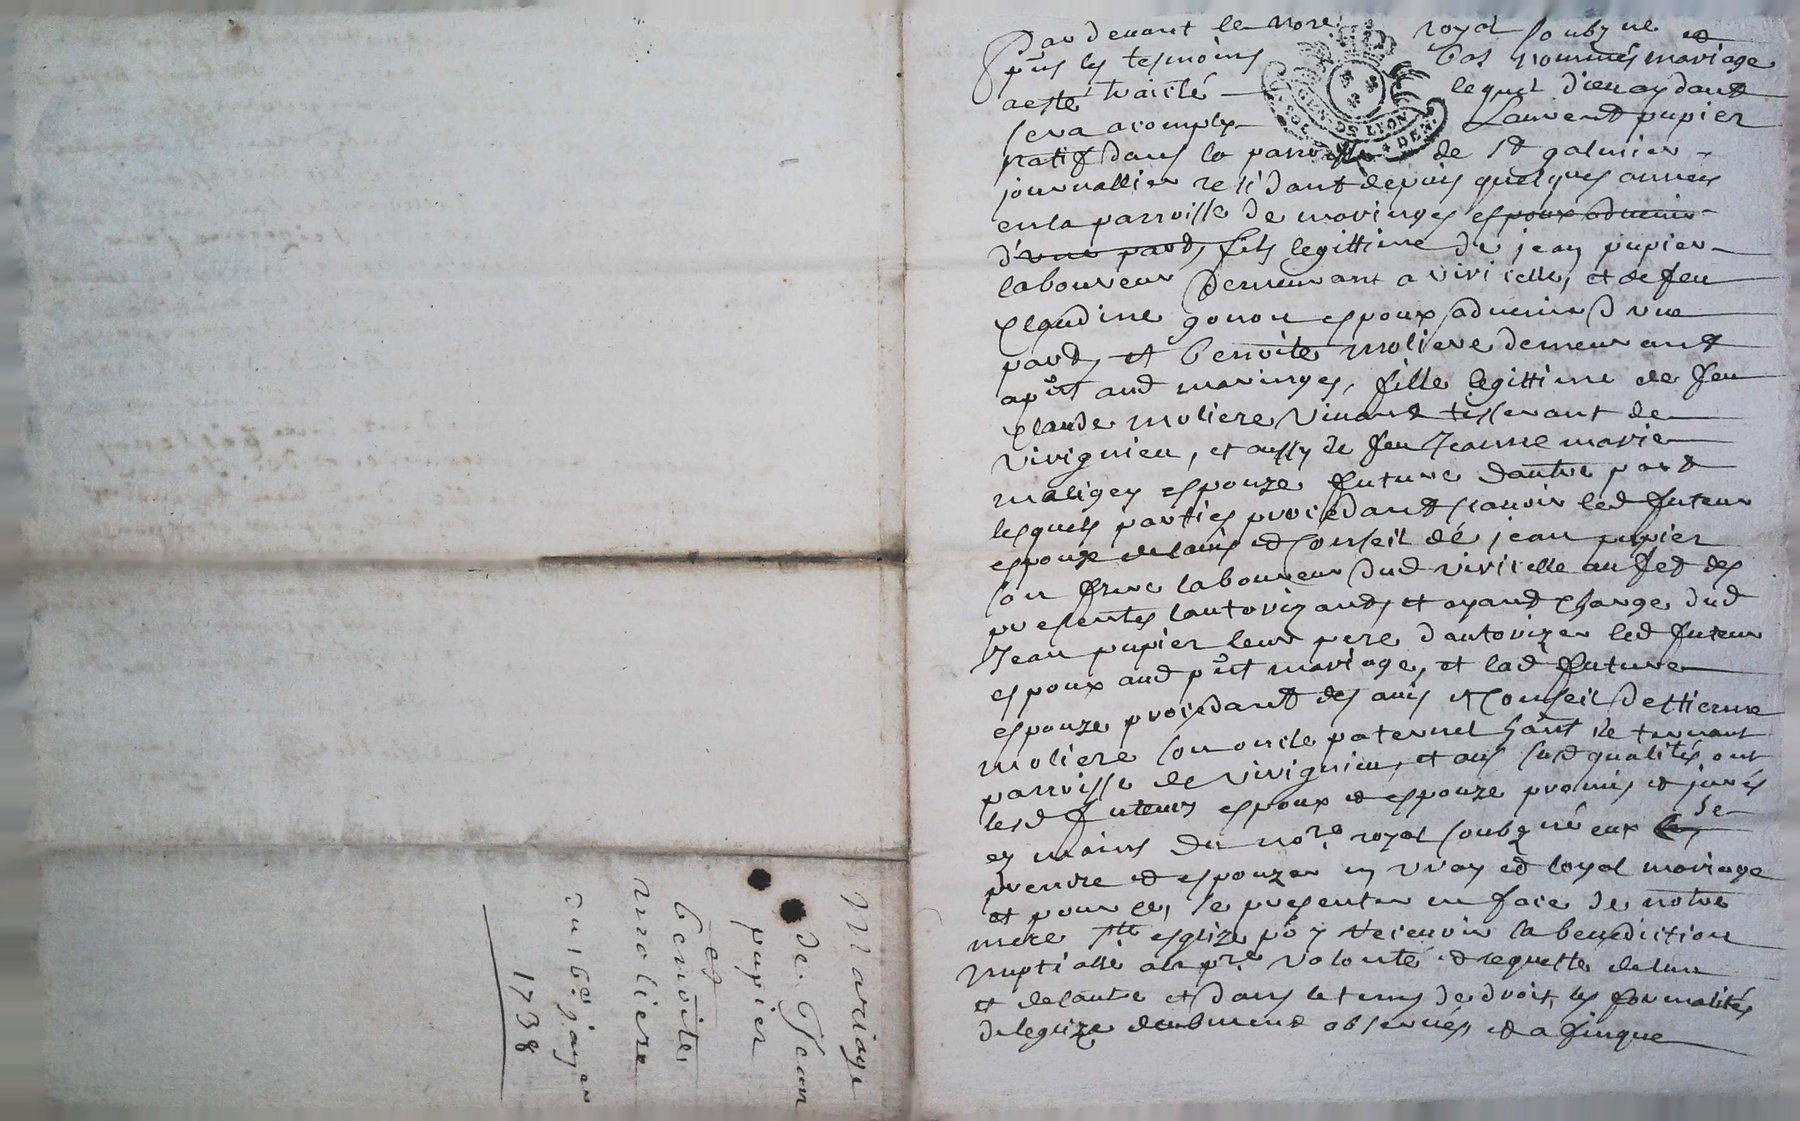 Par devant le nore royal soubzné et
pnts les tesmoins bas nommés mariage
a esté traicté lequel dieu aydant
sera acomply Laurent pupier
natif dans la parroisse de st galmier
journallier residant depuis quelques annees
en la parroisse de maringes espoux advenir
d'une part, fils legittime de jean pupier
laboureur demeurant a viricelle, et de feu
Claudine gonon espoux advenir d'une
part, et benoite moliere demeurant
apnt aud maringes, fille legittime de feu
Claude moliere vivant tisserant de
virignieu, et aussy de feu Jeanne marie
espouze future dautre part
lesquels parties procedant scavoir led futeur
espoux de lavis et conseil de jean pupier
son frere laboureur dud viricelle au fet des
presentes lautorizant, et ayant charge dud
Jean pupier leur pere dautorizer led futeur
espoux aud pnt mariage, et lad future
espouze procedant des avis et conseil destienne
moliere son oncle paternel hant
parroisse de virignieu, et aus susd qualités ont
lesd futeurs espoux et espouze promis et jurés
es mains du nore royal soubzné eux se
prendre et espouzer en vray et loyal mariage
et pour ce, se presenter en face de notre
mere ste esglize po y recevoir la benediction
nuptialle a la pre volonté et requette de lun
et de lautre et dans le tems de droit, les formalités
de leglize deubment observées, et a fin que
Mariage
de Jean
pupier
et
benoite
moliere
du 16e janer
1738
GEN. DE LYON